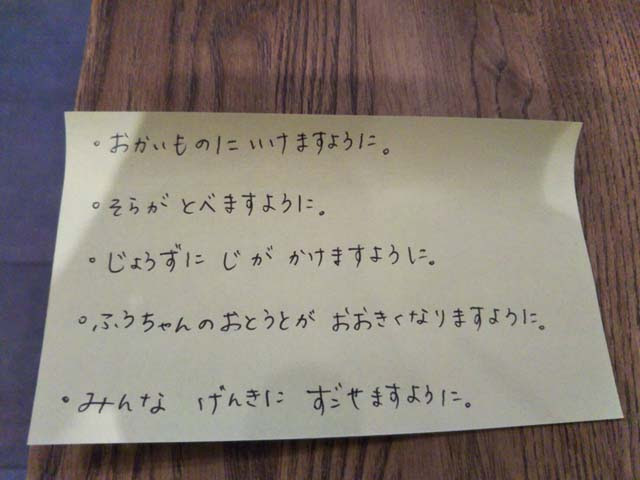 。おかいものにいけますように。
。そらが とべますように。
。じょうずに じが かけますように。
。ふうちゃんのおとうとが おおきくなりますように。
・みんな げんきに すごせますように。